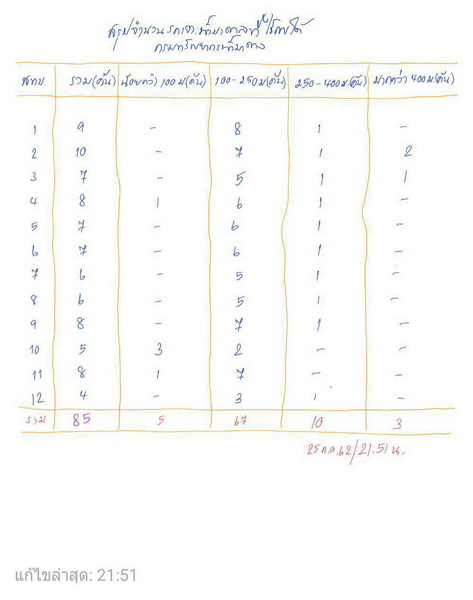 สรุปจำนวนรถเจาะน้ำบาดาลที่ใช้การได้
กรมทรัพยากรน้ำบาดาล
สทบ. รวม(คัน) น้อยกว่า 100ม(คัน) 100-250ม(คัน) 250-400ม(คัน) มากกว่า 400ม(คัน)
1 9 - 8 1 -
2 10 - 7 1 2
3 7 - 5 1 1
4 8 1 6 1 -
5 7 - 6 1 -
6 7 - 6 1 -
7 6 - 5 1 -
8 6 - 5 1 -
9 8 - 7 1 -
10 5 3 2 - -
11 8 1 7 - -
12 4 - 3 1 -
รวม 85 5 67 10 3
25 ก.ค. 62/21.51 น.
แก้ไขล่าสุด: 21:51